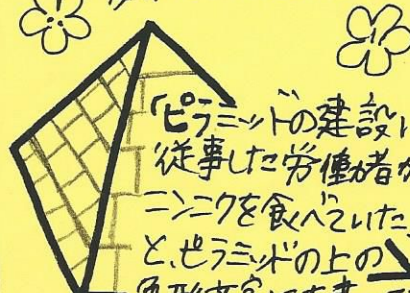 「ピラミッドの建設に
従事した労働者が
ニンニクを食べていた
と、ピラミッドの上の